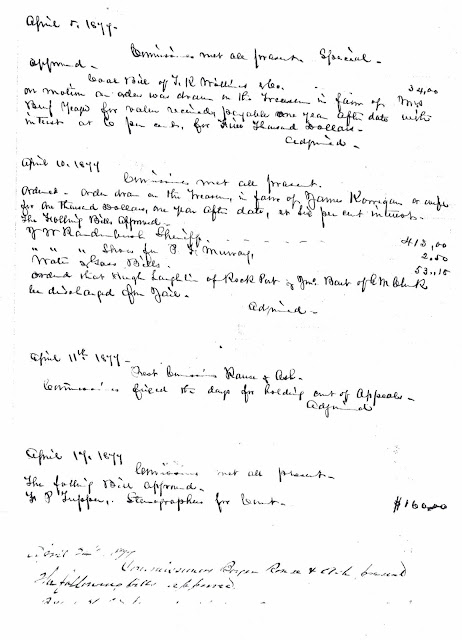 April 5. 1877-
Commissioners met all present. Special-
approved-
Coal Bill of T. R. Williams & Co. - 34,00
on motion an order was drawn on the Treasurer in favor of Mrs
for value received payable one year after date with
interest at 6 per cent, for Five Thousand Dollars-
Adjourned-
April 10. 1877
Commissioners met all present.
Ordered- order drawn on the Treasurer, in favor of James Korrigan or wife
for one Thousand Dollars, one year after date, at six per cent interest.
The following Bills approved-
Sheriff 413,00
" " " Shoes for P. F. Murray, 2.50
Water & Gass Bills- 53,15
ordered that Hugh Laughlin of Rock Port &
be discharged from Jail-
Adjourned-
April 11th 1877-
Commissioners Rause & Ash-
Commissioners fixed the days for holding court of Appeals-
Adjourned
April 17. 1877
Commissioners met all present-
The following Bill approved-
F. P. Tupper, Stenographer for Court- $160.00
April 1877
Commissioners Boyer Rause & Ash, present
The following bills approved